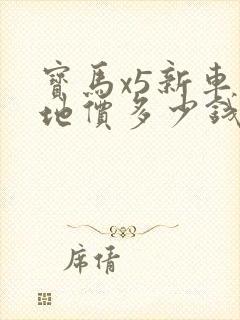 寶馬x5新車
地價多少錢
席倩